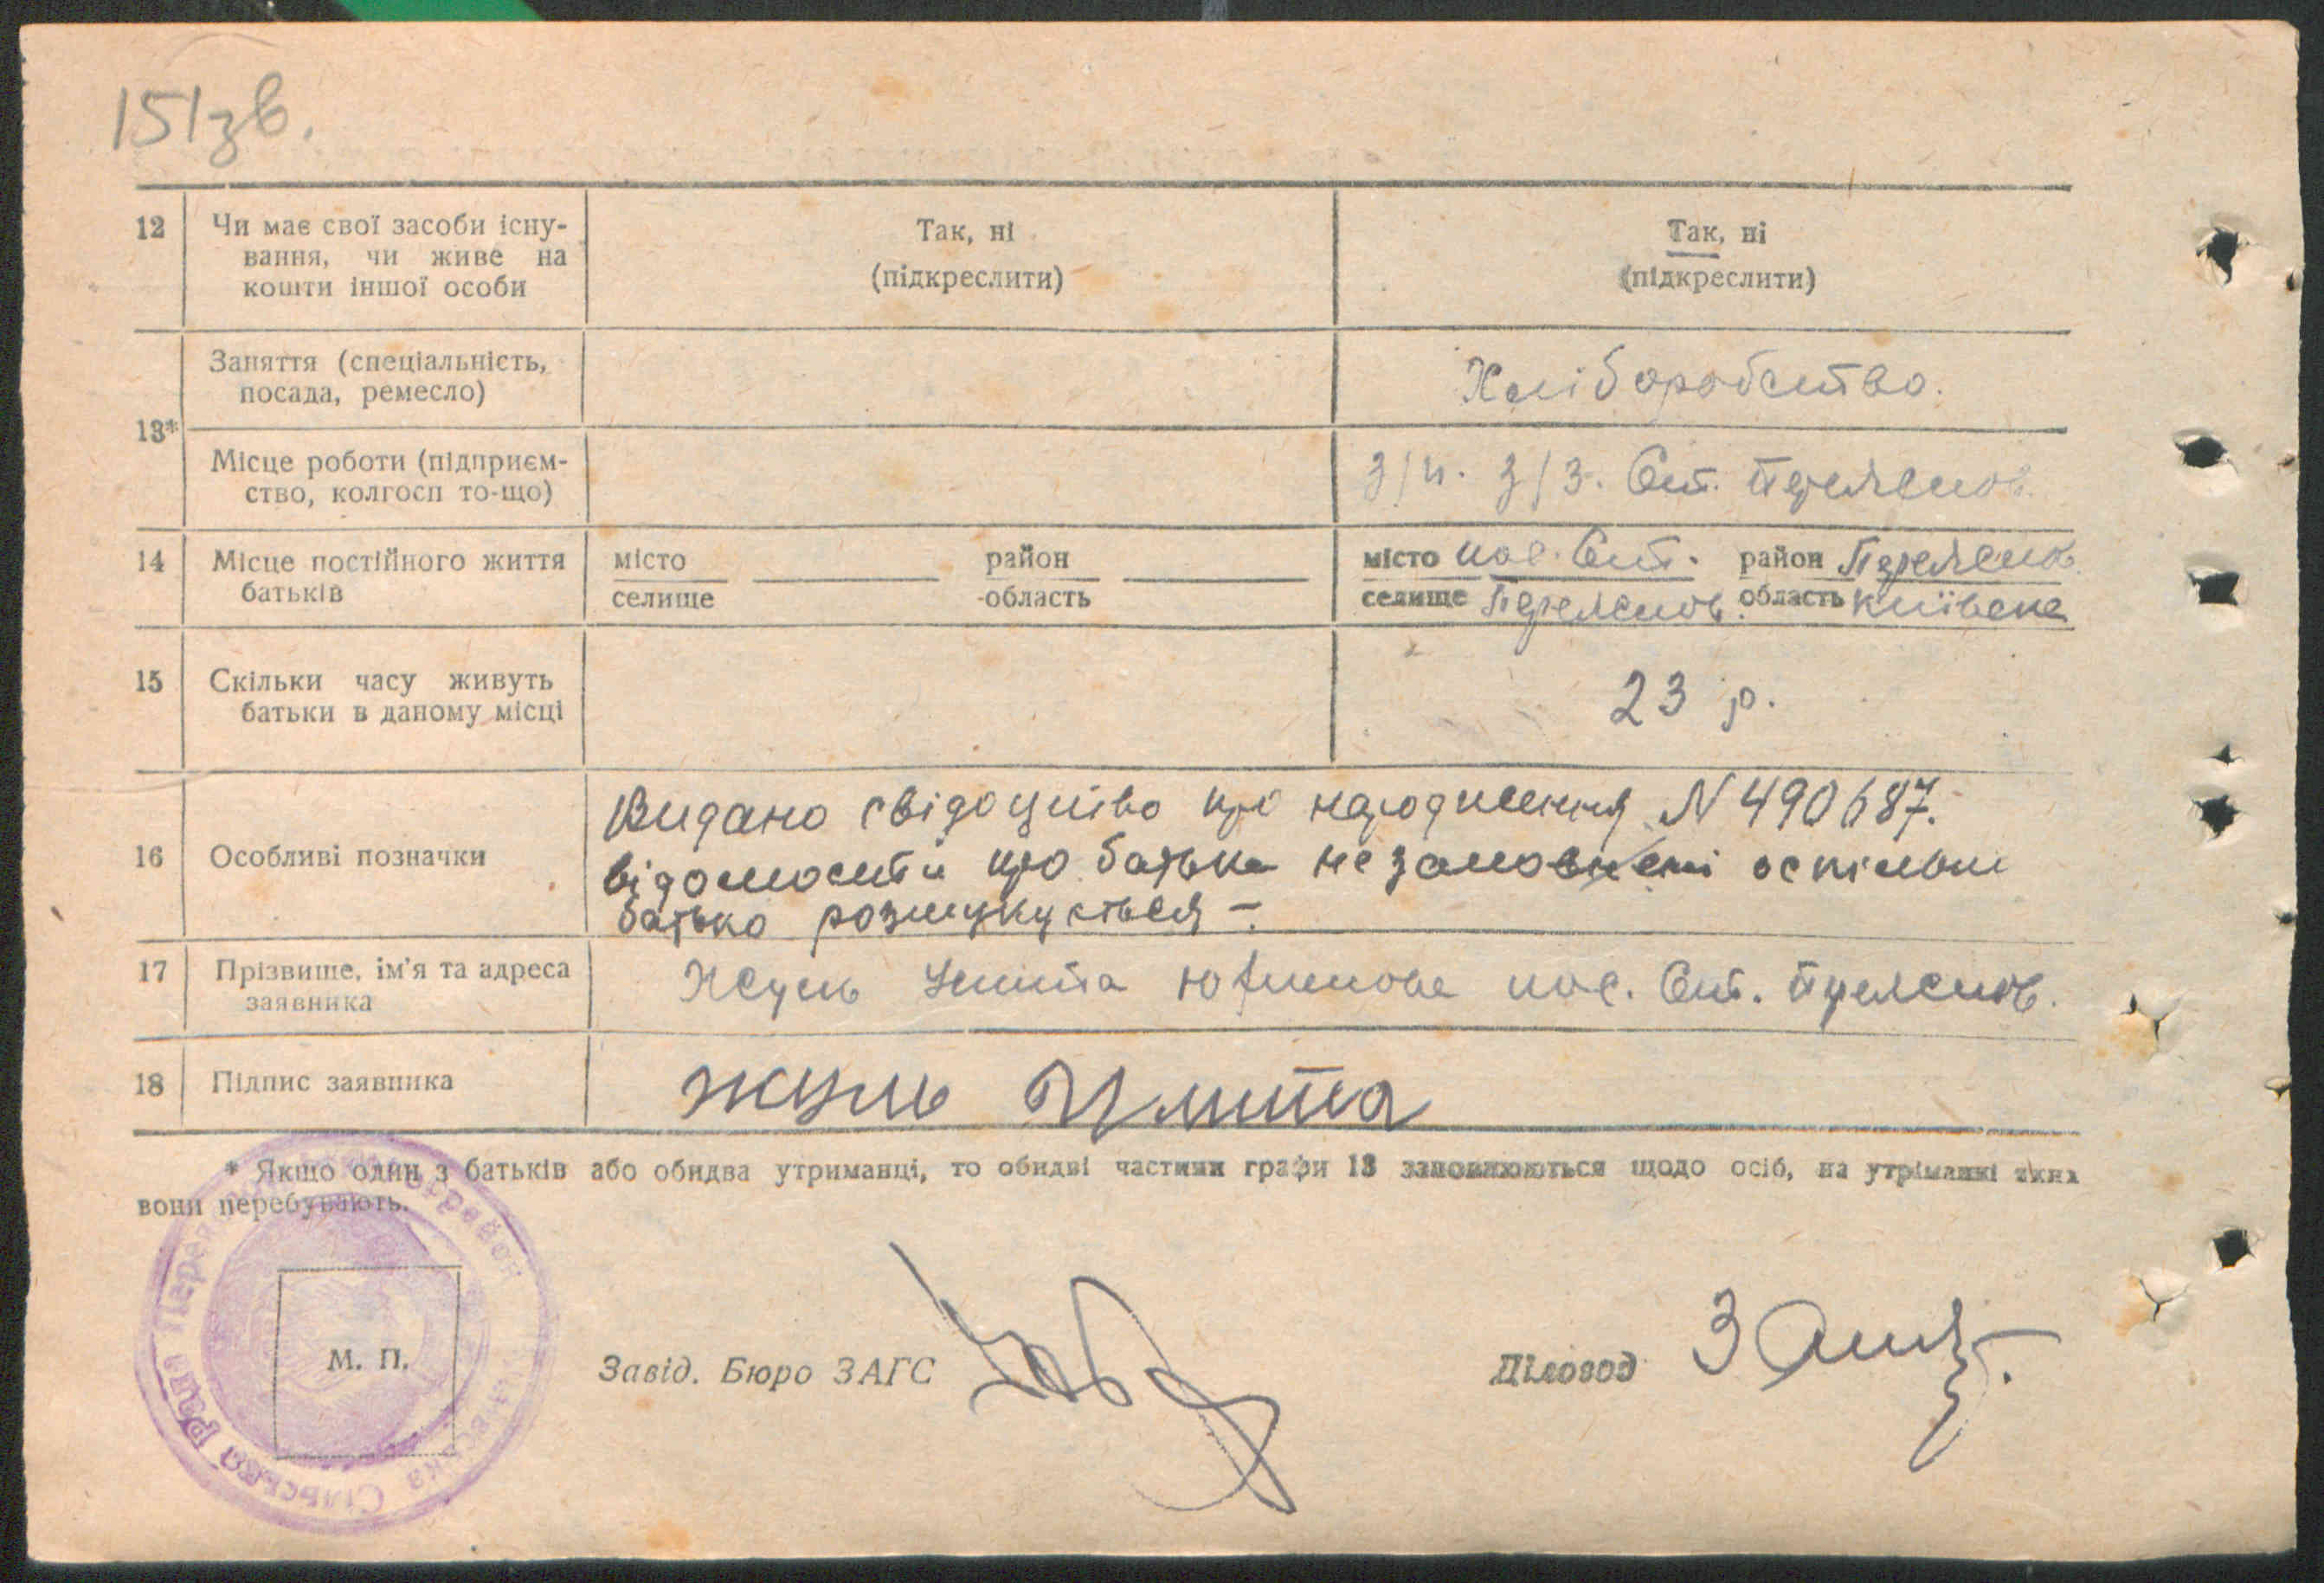 151зв.
12 Чи має свої засоби існу-
вання, чи живе на
кошти іншої особи
Так, ні
(підкреслити)
Так, ні
(підкреслити)
13*
Заняття (спеціальність,
посада, ремесло)
Хліборобство.
Місце роботи (підприєм-
ство, колгосп то-що)
з/з. Ст.
14 Місце постійного життя
батьків
місто
селище
район
область
місто пос. Ст. район Переяслов.
селище Переяслов. область Київська
15 Скільки часу живуть
батьки в даному місці
23 р.
16 Особливі позначки
Видано свідоцтво про народження N 490687.
відомости про батька не заповнені оскільки
батько розшукується –
17 Прізвище, ім'я та адреса
заявника
Жуль Улита пос. Ст. Переяслов.
18 Підпис заявника
жуль Улита
* Якщо один з батьків або обидва утриманці, то обидві частини графи 13 заповнюються щодо осіб, на утріманні яких
вони перебувають.
Сільська Рада
М. П.
Завід. Бюро ЗАГС
Діловод